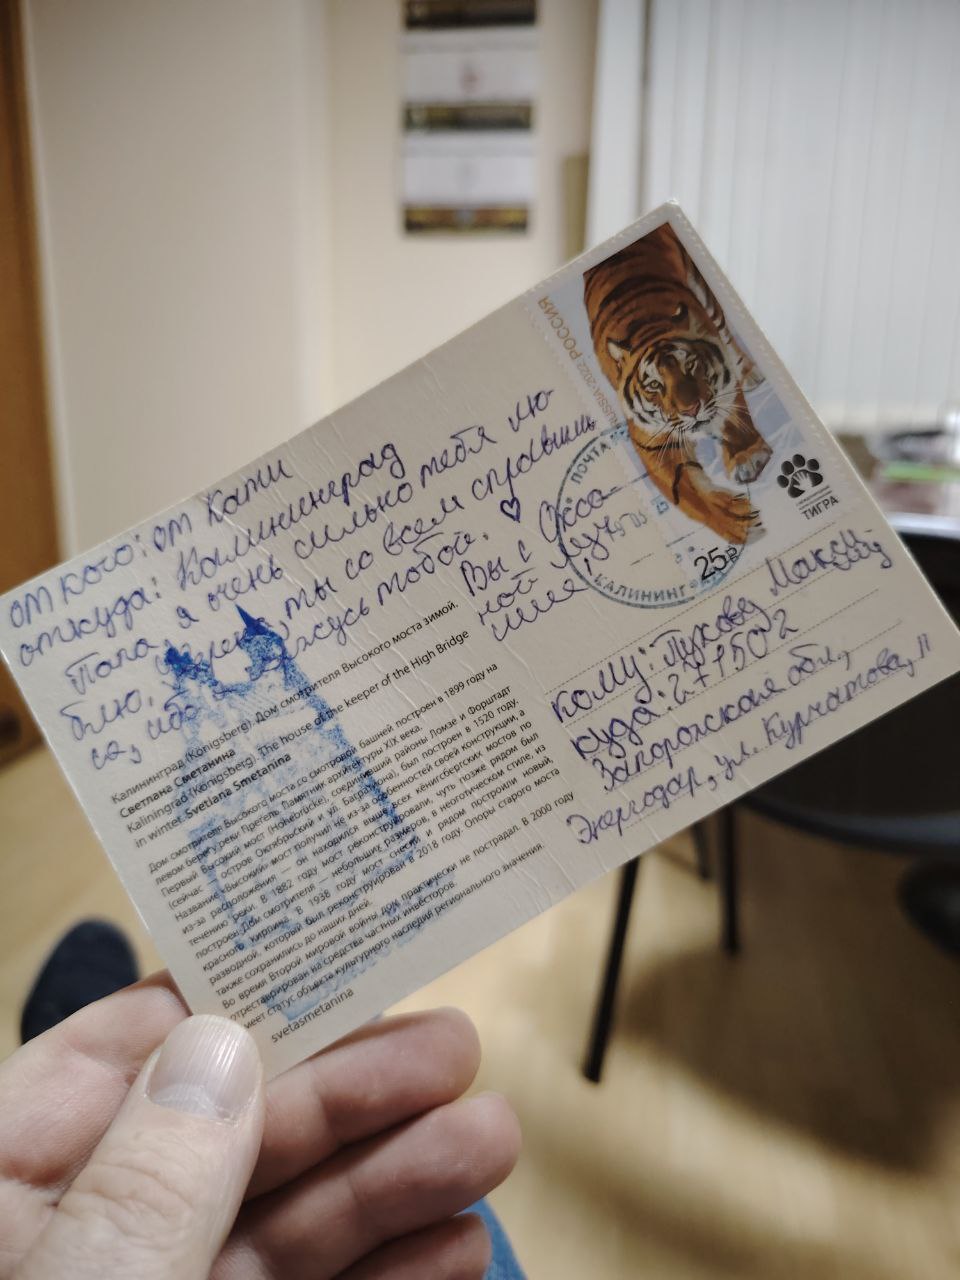 от кого: от Кати
откуда: Калининград
Папа, я очень сильно тебя лю-
блю. ты со всем справишь
ся, ибо тобой. ♡
Вы с Окса-
ной луч
шие!
Калининград (Königsberg). Дом смотрителя Высокого моста зимой.
Светлана Сметанина
Kaliningrad (Königsberg). The house of the keeper of the High Bridge
in winter. Svetlana Smetanina
Дом смотрителя Высокого моста со смотровой башней построен в 1899 году на
левом берегу реки Преголи. Памятник архитектуры XIX века.
Первый Высокий мост (Hohebrücke), соединивший районы Ломзе и Форштадт
(сейчас — остров Октябрьский и ул. Багратиона), был построен в 1520 году.
Название «Высокий» мост получил не из-за особенностей своей конструкции, а
из-за расположения — он находился выше всех кёнигсбергских мостов по
течению реки. В 1882 году мост реконструировали, чуть позже рядом был
построен Дом смотрителя — небольших размеров, в неоготическом стиле, из
красного кирпича. В 1938 году мост снесли и рядом построили новый,
разводной, который был реконструирован в 2018 году. Опоры старого моста
также сохранились до наших дней.
Во время Второй мировой войны дом практически не пострадал. В 2000 году
отреставрирован на средства частных инвесторов.
имеет статус объекта культурного наследия регионального значения.
svetasmetanina
RUSSIA·2022. РОССИЯ
25₽
ТИГРА
ПОЧТА
КАЛИНИНГ
кому: Максиму
куда: 271502
Запорожская обл.,
Энергодар, ул. Курчатова, 11